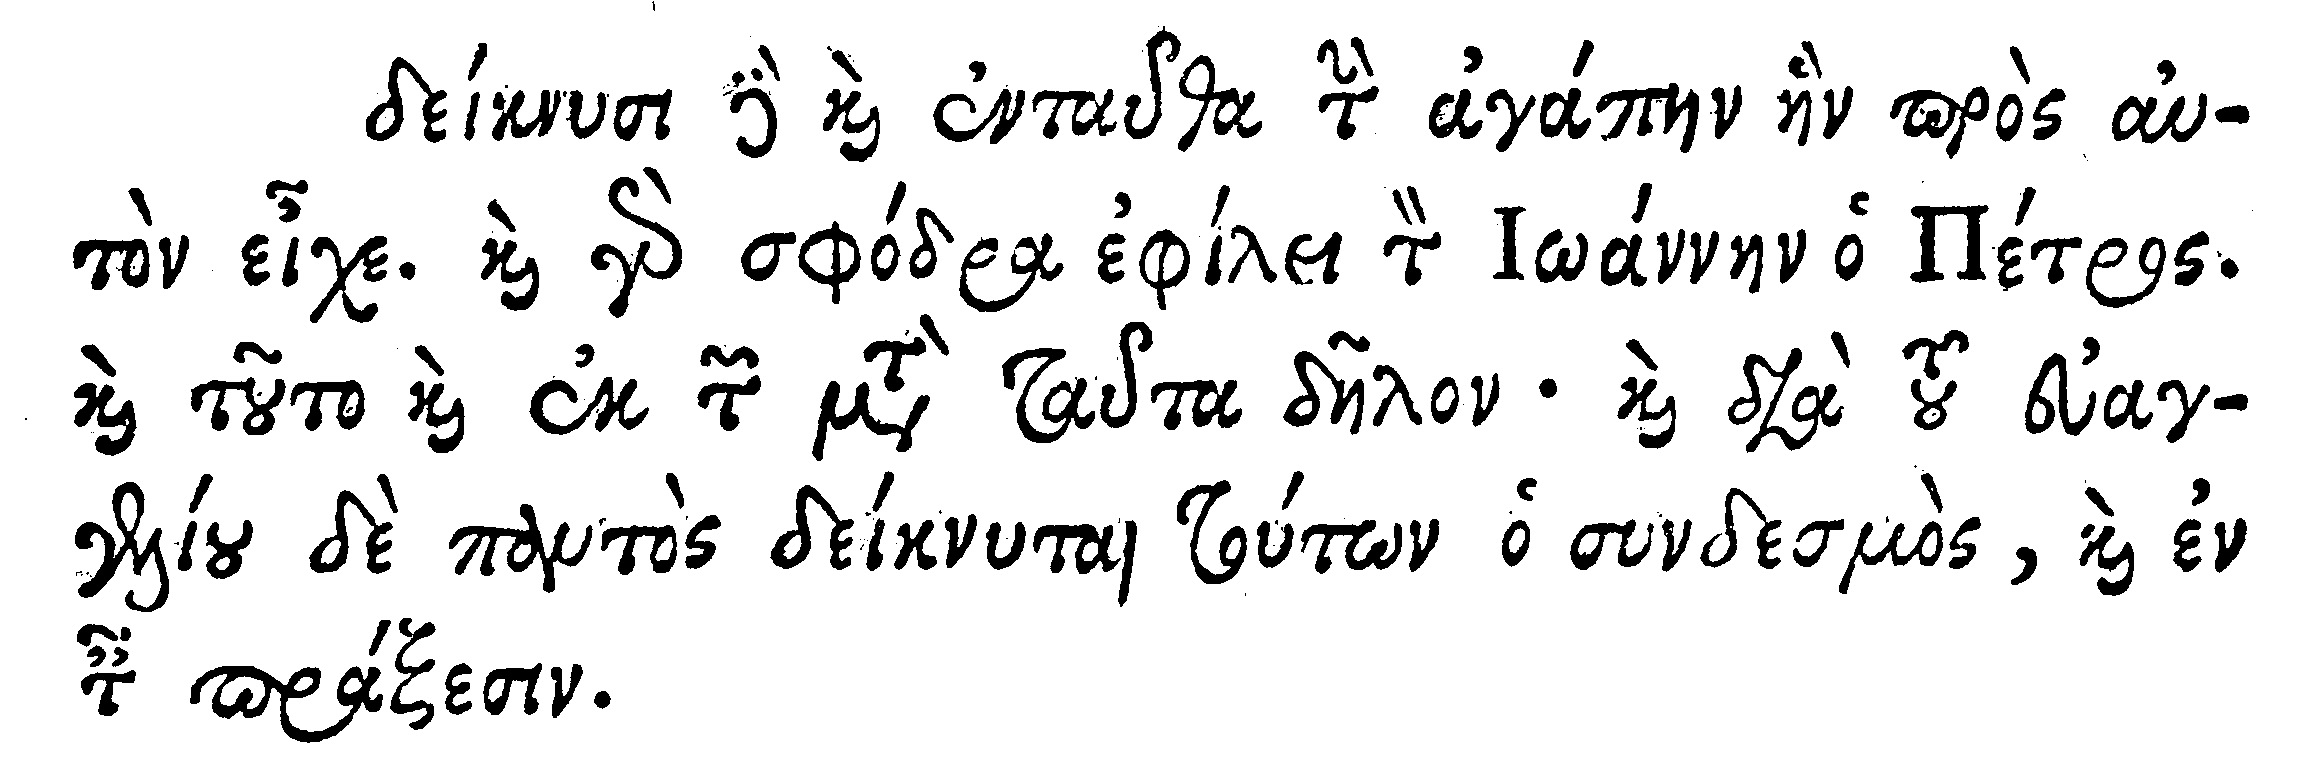 δείκνυσι δὲ καὶ ἐνταῦθα τὴν ἀγάπην ἣν πρὸς αὐ-
τὸν εἶχε. καὶ γὰρ σφόδρα ἐφίλει τὸν Ἰωάννην ὁ Πέτρος.
καὶ τοῦτο καὶ ἐκ τῶν μετὰ ταῦτα δῆλον· καὶ διὰ τοῦ εὐαγ-
γελίου δὲ παντὸς δείκνυται τούτων ὁ συνδεσμὸς, καὶ ἐν
ταῖς πράξεσιν.